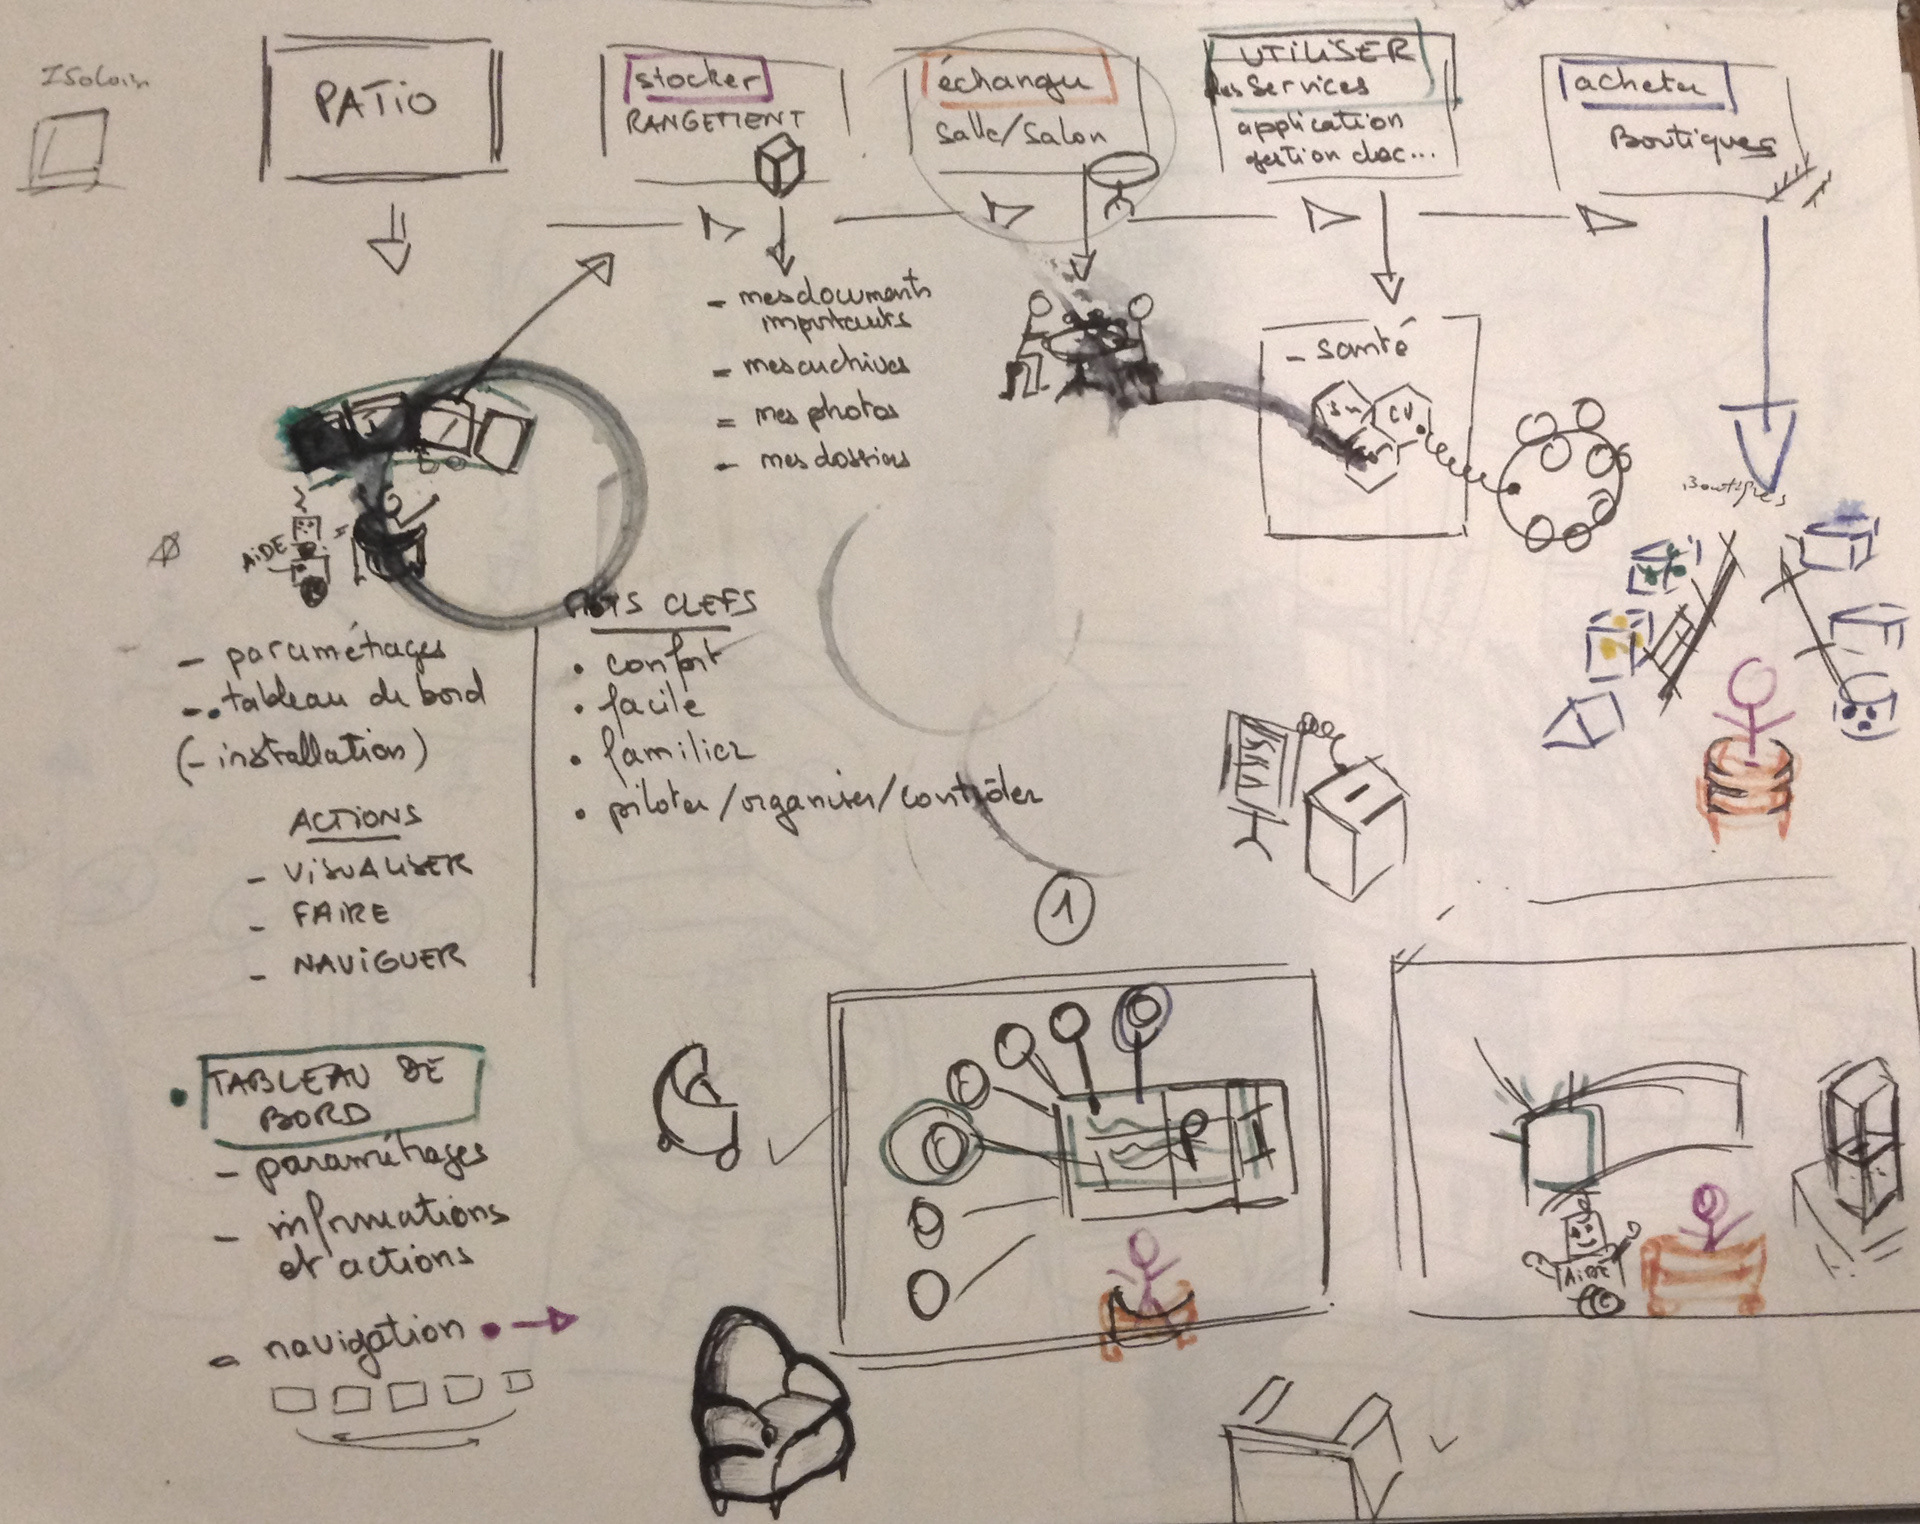 ISoloir
PATIO
stocker
RANGEMENT
échanger
Salle/Salon
UTILISER
des Services
application
gestion doc...
acheter
Boutiques
- mes documents
importants
- mes archives
= mes photos
- mes dossiers
- Santé
CV
Boutiques
AiDE
- paramétrages
-. tableau de bord
(- installation)
ACTIONS
- VISUALISER
- FAIRE
- NAVIGUER
MOTS CLEFS
• confort
• facile
• familier
• piloter/organiser/contrôler
1
• TABLEAU DE
BORD
- paramétrages
- informations
et actions
- navigation
AiDE